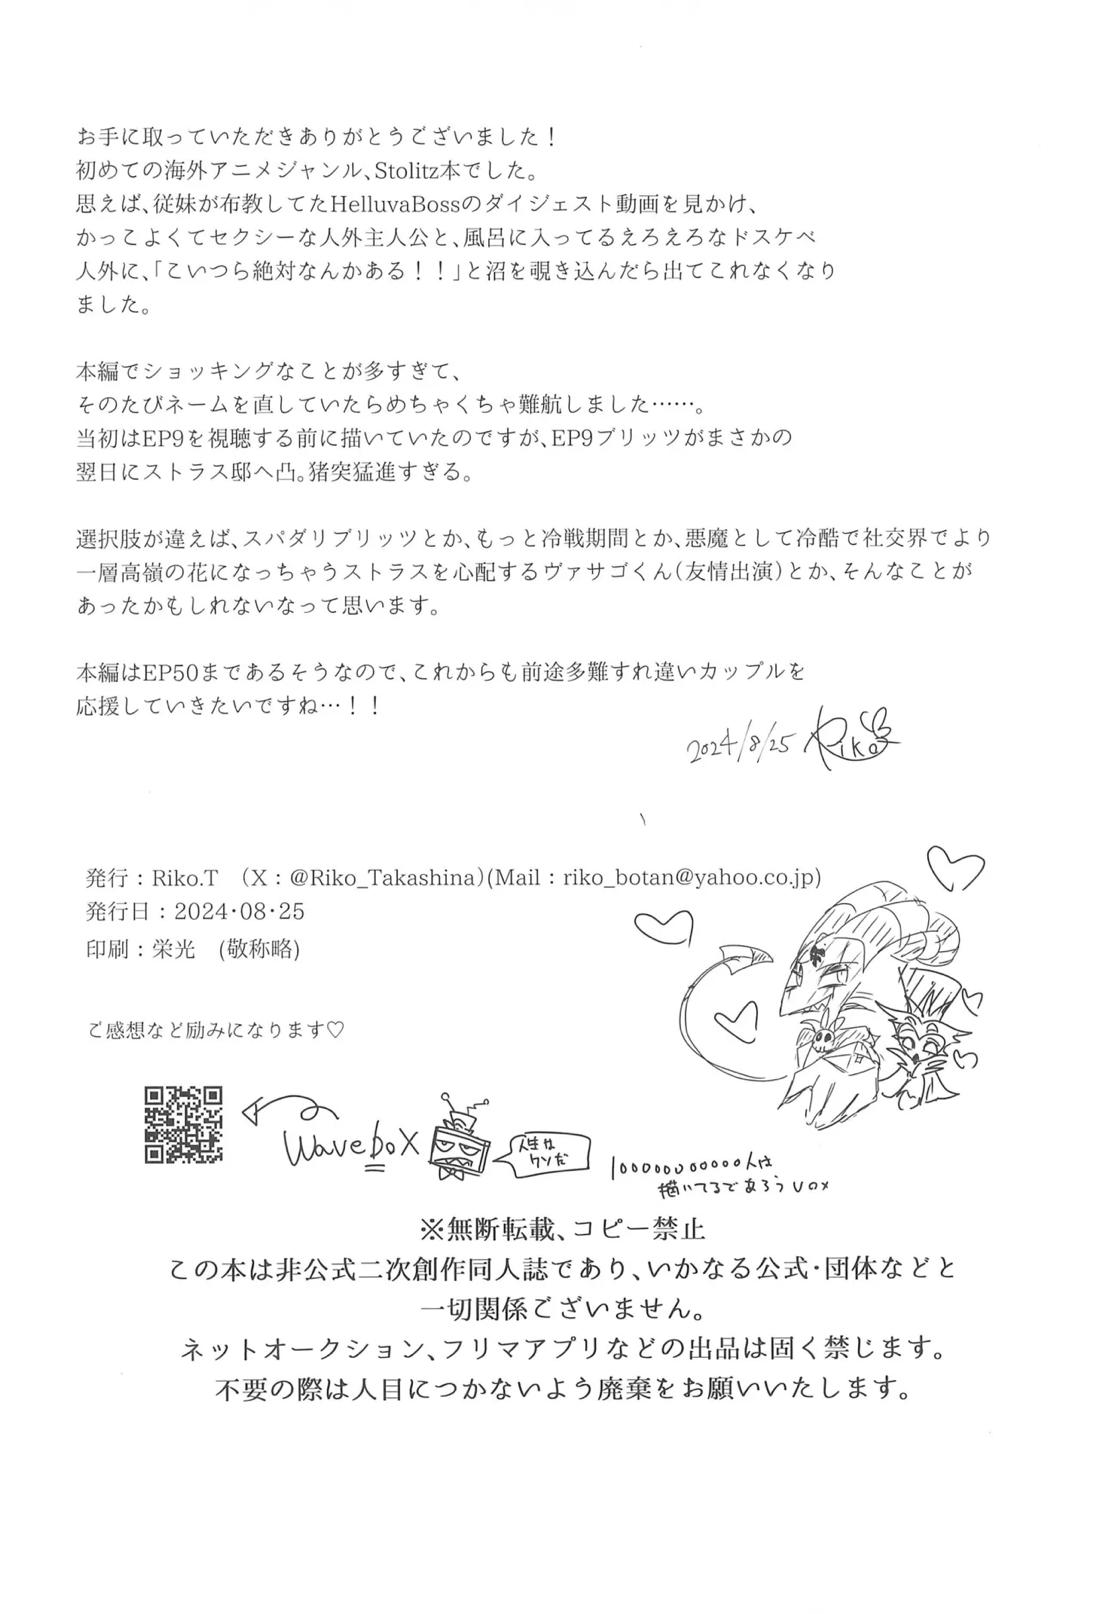 お手に取っていただきありがとうございました！
初めての海外アニメジャンル、Stolitz本でした。
思えば、従妹が布教してたHelluvaBossのダイジェスト動画を見かけ、
かっこよくてセクシーな人外主人公と、風呂に入ってるえろえろなドスケベ
人外に、「こいつら絶対なんかある！！」と沼を覗き込んだら出てこれなくなり
ました。
本編でショッキングなことが多すぎて、
そのたびネームを直していたらめちゃくちゃ難航しました……。
当初はEP9を視聴する前に描いていたのですが、EP9ブリッツがまさかの
翌日にストラス邸へ凸。猪突猛進すぎる。
選択肢が違えば、スパダリブリッツとか、もっと冷戦期間とか、悪魔として冷酷で社交界でより
一層高嶺の花になっちゃうストラスを心配するヴァサゴくん（友情出演）とか、そんなことが
あったかもしれないなって思います。
本編はEP50まであるそうなので、これからも前途多難すれ違いカップルを
応援していきたいですね…！！
2024/8/25 Riko
発行：Riko.T （X：@Riko_Takashina）(Mail：riko_botan@yahoo.co.jp)
発行日：2024･08･25
印刷：栄光 (敬称略)
ご感想など励みになります♡
WaveboX
人生は
クソだ
100000000000人は
描いてるであろうVox
※無断転載、コピー禁止
この本は非公式二次創作同人誌であり、いかなる公式･団体などと
一切関係ございません。
ネットオークション、フリマアプリなどの出品は固く禁じます。
不要の際は人目につかないよう廃棄をお願いいたします。